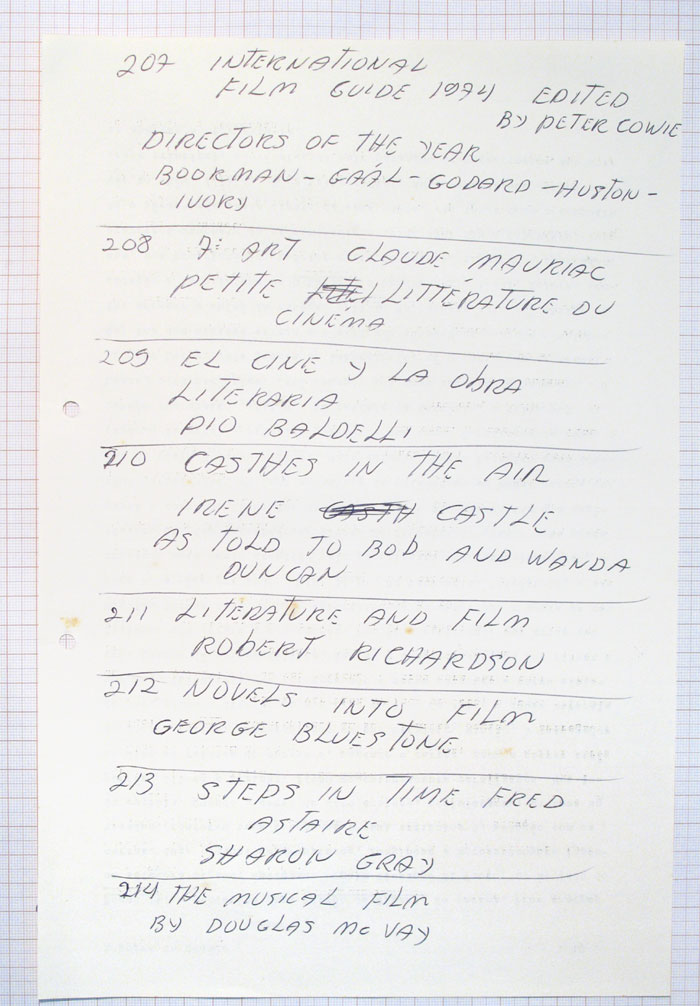 207 INTERNATIONAL
FILM GUIDE 1974 EDITED
BY PETER COWIE
DIRECTORS OF THE YEAR
BOORMAN - GAÁL - GODARD - HUSTON -
IVORY
208 7: ART CLAUDE MAURIAC
PETITE LITTÉRATURE DU
CINÉMA
209 EL CINE Y LA ObRA
LITERARIA
PIO BALDELLI
210 CASTLES IN THE AIR
IRENE CASTLE
AS TOLD TO BOb AND WANDA
DUNCAN
211 LITERATURE AND FILM
ROBERT RICHARDSON
212 NOVELS INTO FILM
GEORGE BLUESTONE
213 STEPS IN TIME FRED
ASTAIRE
SHARON GRAY
214 THE MUSICAL FILM
BY DOUGLAS MC VAY